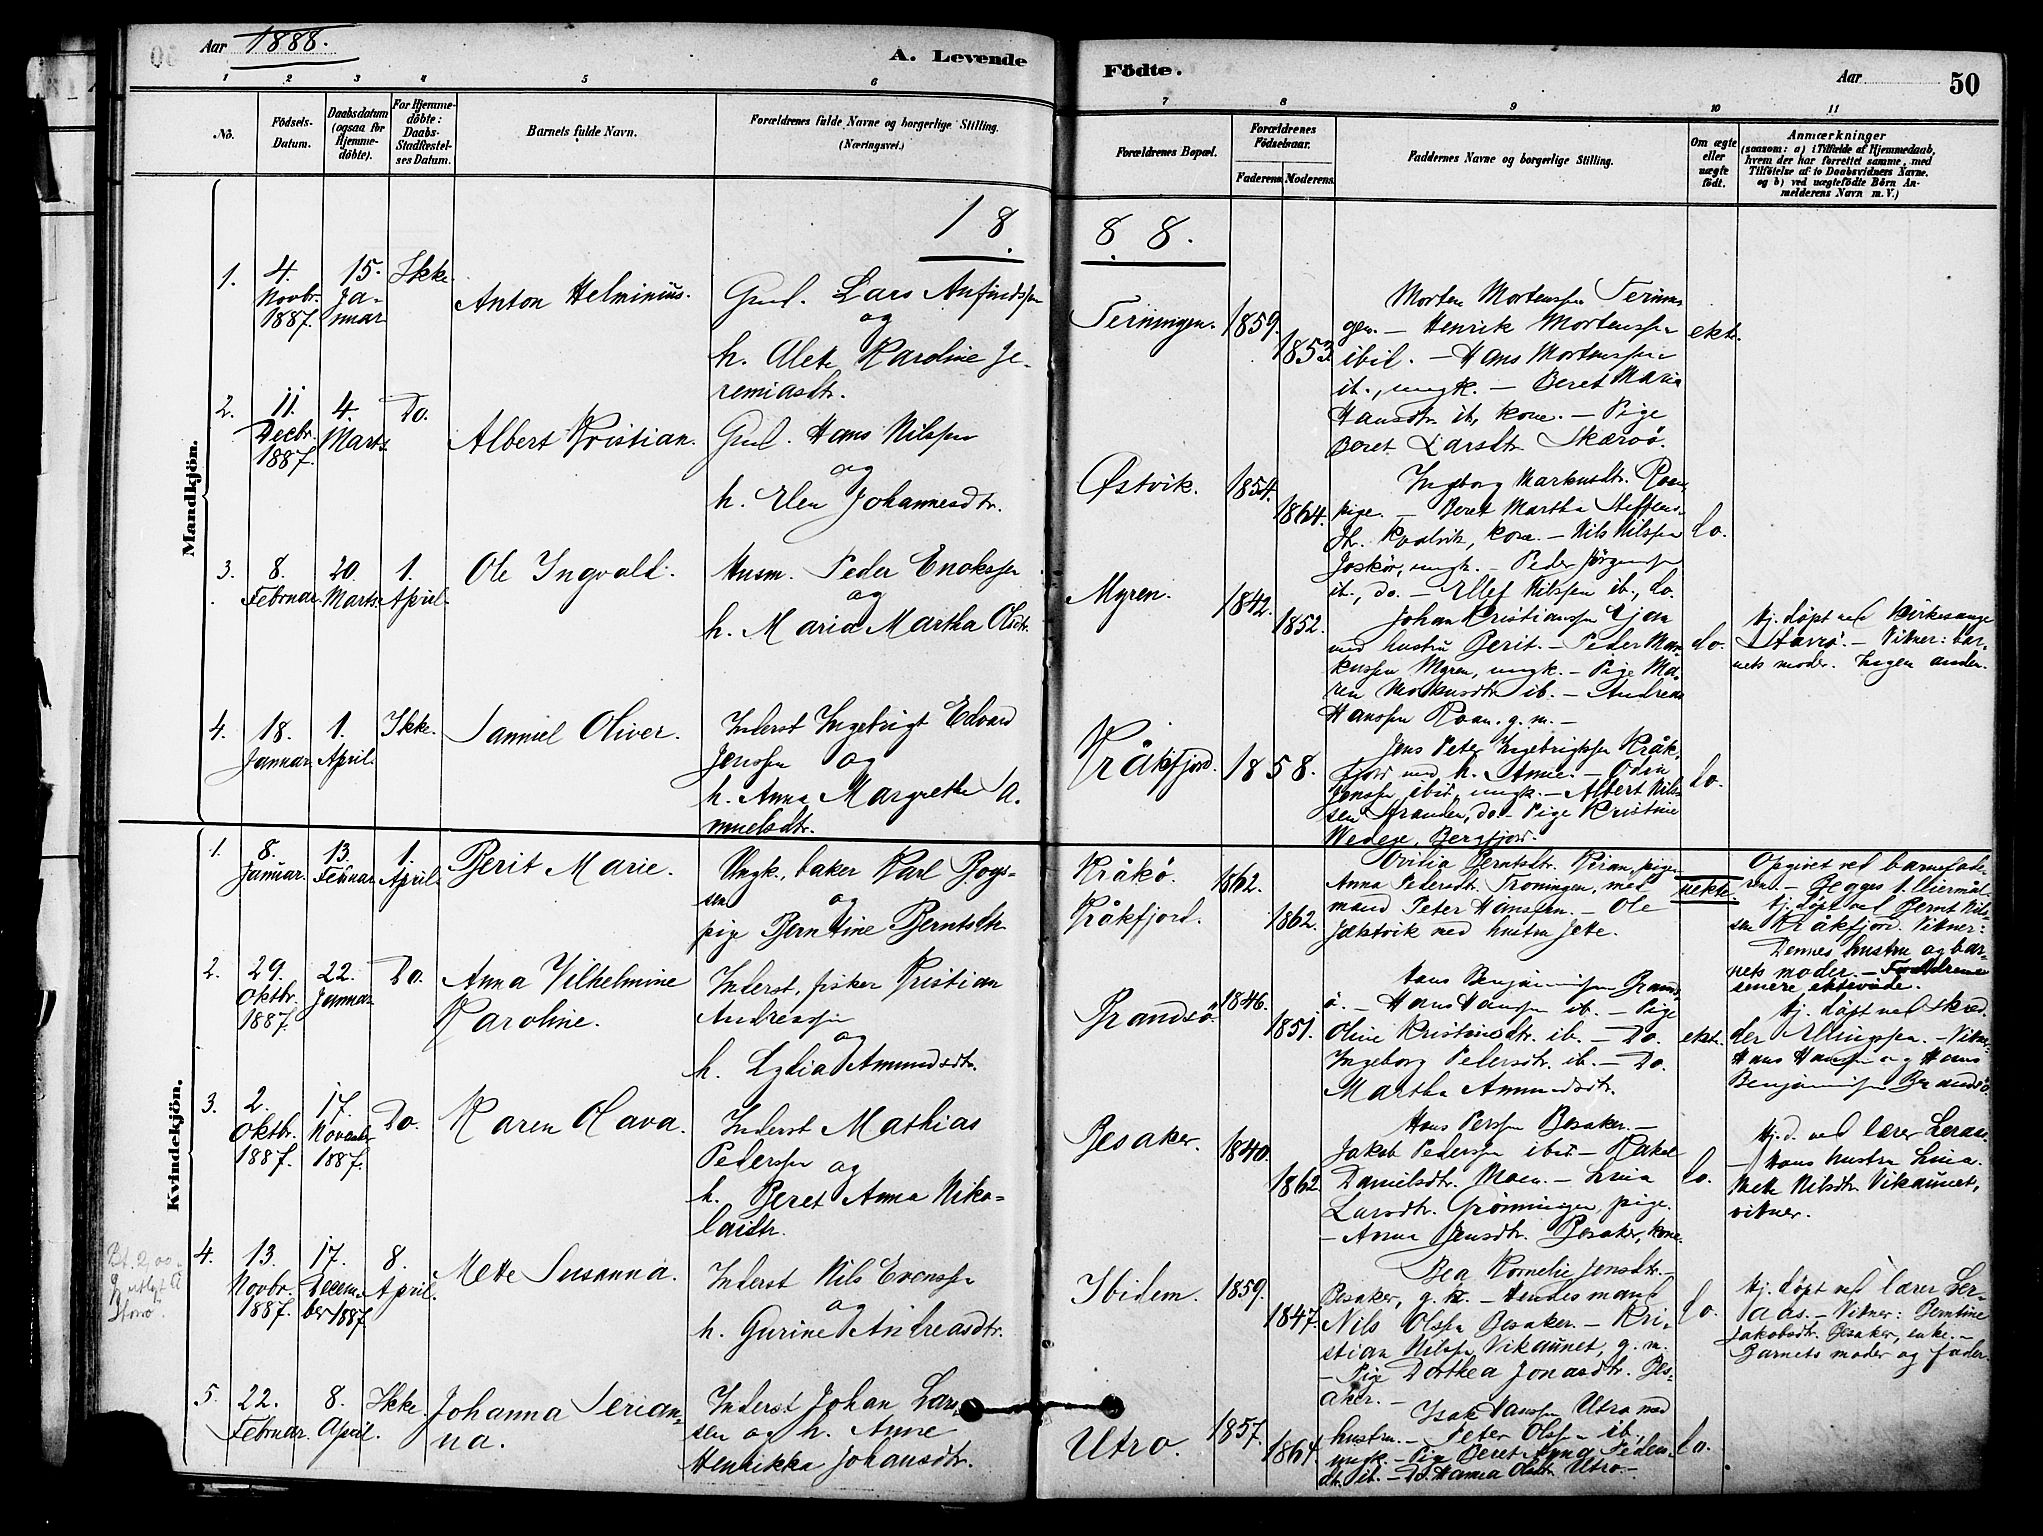 Aar 1888.
A. Levende
Födte.
Aar
50
1 2 3 4 5 6 7 8 9 10 11
No.
Födsels-
Datum.
Daabsdatum
(ogsaa for
Hjemme-
döbte).
For Hjemme-
döbte:
Daabs-
Stadfæstel-
ses Datum.
Barnets fulde Navn.
Forældrenes fulde Navne og borgerlige Stilling.
(Næringsvei.)
Forældrenes Bopæl.
Forældrenes
Födselsaar.
Faderens. Moderens.
Faddernes Navne og borgerlige Stilling.
Om ægte
eller
uægte
födt.
Anmærkninger
(saasom: a) i Tilfælde af Hjemmedaab,
hvem der har forrettet samme, med
Tilföielse af to Daabsvidners Navne.
og b) ved uægtefödte Börn An-
melderens Navn m. V.)
18
88.
Mandkjön.
1.
4.
Novbr.
1887.
15.
Ja-
nuar
Ikke.
Anton Helminius.
Gmd. Lars Anfindssen
og
h. Alet Karoline Je-
remiasdtr.
Terningen.
1859.
1853.
Morten Mortenssen Ternin-
gen. — Henrik Mortenssen
ibid. — Hans Mortenssen
ib., ungk. — Beret Maria
Hansdtr. ib, kone. — Pige
Beret Larsdtr. Skærvö.
ekte.
2.
11.
Decbr.
1887.
4.
Marts.
Do.
Albert Kristian.
Gmd. Hans Nilssen
og
h. Elen Johannesdtr.
Østvik.
1854.
1864.
Ingeborg Markusdtr. Roan,
pige. — Beret Martha Steffens-
dtr. , kone. — Nils Nilssen
Joskör, ungk. — Peder Jörgenssen
ib., do. — Ellef Nilssen ib., do.
do.
3.
8.
Februar.
20.
Marts.
1.
April.
Ole Ingvald.
Husm. Peder Enokssen
og
h. Maria Martha Olsdtr.
Myren.
1842.
1852.
Johan Kristianssen
med hustru Berit. — Peder Mar-
kussen Myren, ungk. — Pige Ma-
ren Markusdtr. ib. — Andreas
Hanssen Roan. g. m. —
do.
Hj. döpt ved kirkesange
Storvö. — Vitner: bar-
nets moder. Ingen anden.
4.
18.
Januar.
1.
April.
Ikke.
Samuel Oliver.
Inderst Ingebrigt Edvard
Jenssen og
h. Anna Margrethe Sa-
muelsdtr.
Kråkfjord.
1858.
Jens Peter Ingebrigtssen Kråk-
fjord med h. Anne. — Odin
Jenssen ibid, ungk. — Albert Nils-
sen Stranden, do. — Pige Kristine
Wedege, Bergfjord.
do.
Kvindekjön.
1.
8.
Januar.
13.
Februar.
1.
April.
Berit Marie.
Ungk., baker Karl Bogs-
sen og
pige Berntine Berntsdtr.
Kråkö.
Kråkfjord.
1862.
1862.
Ovidia Berntsdtr. Kiran, pige
Anna Pedersdtr. Terningen, med
mand Peter Hanssen. — Ole
Jektvik med hustru Jete.
uekte.
Opgivet ved barnefade-
ren. — Begges 1. leiermål.
Hj. döpt ved Bernt Nils-
sen Kråkfjord. Vitner:
Dennes hustru og bar-
nets moder. — Foreldrene
senere ekteviede.
2.
29.
Oktbr.
1887.
22.
Januar.
Do.
Anna Vilhelmine
Karoline.
Inderst, fisker Kristian
Andreassen
og
h. Lydia Amundsdtr.
Brandsö.
1846.
1851.
Hans Benjaminssen Brands-
ö. — Hans Hanssen ib. — Pige
Oline Kristiansdtr. ib. — Do.
Ingeborg Pedersdtr. ib. — Do.
Martha Amundsdtr.
ekte.
Hj. döpt ved Skred-
der Ellingssen. — Vitner:
Hans Hanssen og Hans
Benjaminssen Brandsö.
3.
2.
Oktbr.
1887.
17.
Novembr
1887.
Do.
Karen Olava.
Inderst Mathias
Pederssen og
h. Beret Anna Niko-
laidtr.
Besaker.
1840.
1862.
Hans Perssen Besaker. —
Jakob Pederssen ibid — Rakel
Danielsdtr. Moen. — Lina
Larsdtr. Grönningen, pige.
— Anna Jensdtr. Besaker, kone.
do.
Hj. d. ved lærer Leraas.
— Hans hustru Lina.
Mette Nilsdtr. Vikaunet,
vitner.
4.
13.
Novbr.
1887.
17.
Decem-
ber 1887.
8.
April.
Mette Susanna.
Inderst Nils Evenssen
og
h. Gurine Andreasdtr.
Ibidem.
1859.
1847.
Bea Kornelie Jensdtr. —
Besaker, g. k. — Hendes mand
Nils Olssen Besaker. — Kri-
stian Nilssen Vikaunet, g. m.
— Pige Dorthea Jonasdtr. Bes-
aker. —
do.
Hj. döpt ved lærer Ler-
aas. — Vitner: Berntine
Jakobsdtr. Besaker, enke. —
Barnets moder og fader.
5.
22.
Februar.
8.
April.
Ikke.
Johanna Serian-
na.
Inderst Johan Lars-
sen og h. Anne
Henrikka Johansdtr.
Utro.
1857.
1864.
Isak Hanssen Utro med
hustru. — Peter Olssen ib.,
ungk. — Pige Beret Anna Peders-
dtr. ib. — Do. Hanna Olsdtr. Utro. —
do.